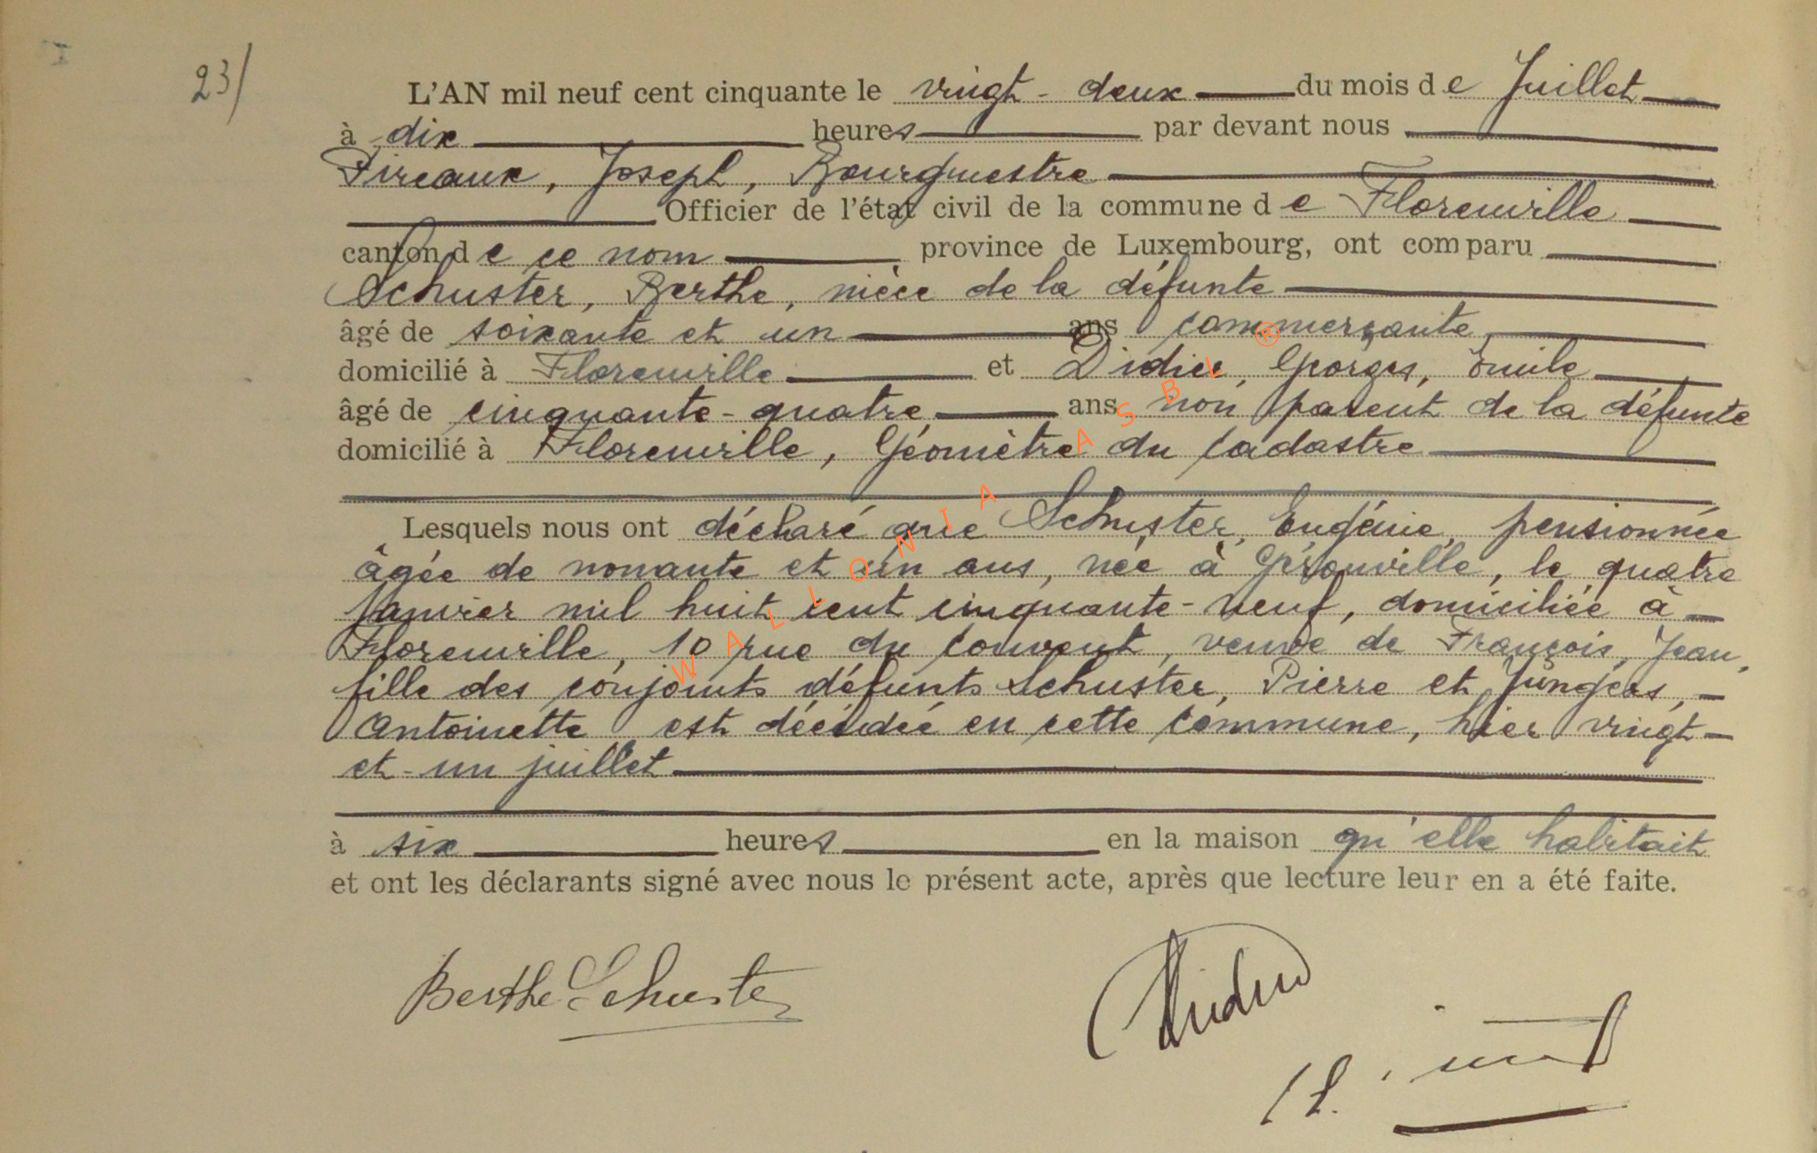 23/
L'AN mil neuf cent cinquante le vingt-deux du mois de Juillet
à dix heures par devant nous
Pireaux, Joseph, Bourgmestre
Officier de l'état civil de la commune de Florenville
canton de ce nom province de Luxembourg, ont comparu
Schuster, Berthe, nièce de la défunte
âgé de soixante et un ans commerçante
domicilié à Florenville et Didier, Georges, Émile
âgé de cinquante-quatre ans non parent de la défunte
domicilié à Florenville, Géomètre du Cadastre
Lesquels nous ont déclaré que Schuster, Eugénie, pensionnée
âgée de nonante et un ans, née à Gérouville, le quatre
Janvier mil huit cent cinquante-neuf, domiciliée à
Florenville, 10 rue du Couvent, veuve de François, Jean,
fille des conjoints défunts Schuster, Pierre et Jüngers,
Antoinette est décédée en cette commune, hier vingt-
et-un juillet
à six heures en la maison qu'elle habitait
et ont les déclarants signé avec nous le présent acte, après que lecture leur en a été faite.
Berthe Schuster
Didier
WALLONIA ASBL ®